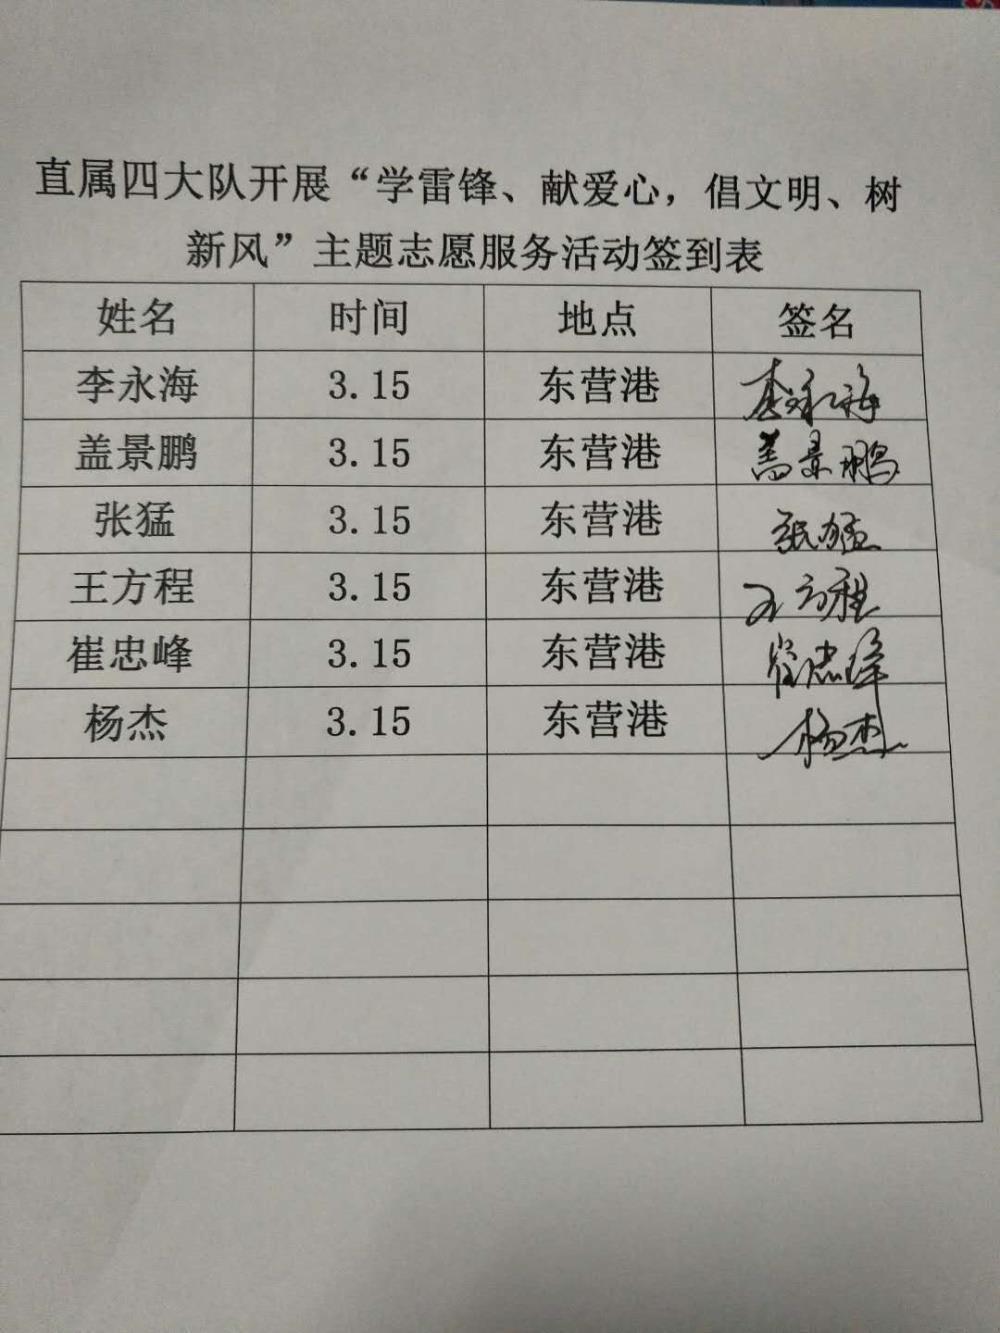 直属四大队开展“学雷锋、献爱心，倡文明、树
新风”主题志愿服务活动签到表
姓名 时间 地点 签名
李永海 3.15 东营港 李永海
盖景鹏 3.15 东营港 盖景鹏
张猛 3.15 东营港 张猛
王方程 3.15 东营港 王方程
崔忠峰 3.15 东营港 崔忠峰
杨杰 3.15 东营港 杨杰